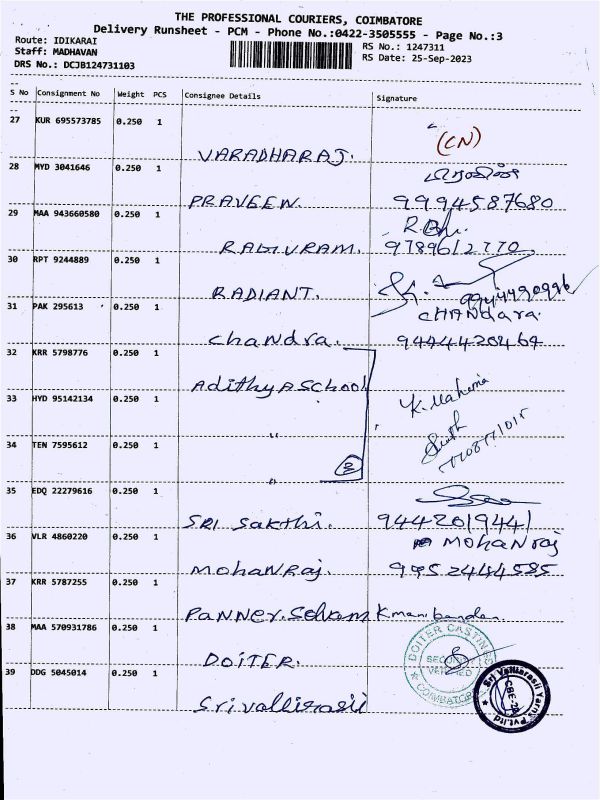 THE PROFESSIONAL COURIERS, COIMBATORE
Delivery Runsheet - PCM - Phone No.:0422-3505555 - Page No.:3
Route: IDIKARAI
RS No.: 1247311
Staff: MADHAVAN
RS Date: 25-Sep-2023
DRS No.: DCJB124731103
S No Consignment No Weight PCS Consignee Details Signature
27 KUR 695573785 0.250 1
VARADHARAJ. (CN)
28 MYD 3041646 0.250 1
PRAVEEN. 9994587680
29 MAA 943660580 0.250 1
RAGIVRAM. 9789612770
30 RPT 9244889 0.250 1
RADIANT.
31 PAK 295613 0.250 1 CHANdara.
chandra. 9444420464
32 KRR 5798776 0.250 1
Adithya School
33 HYD 95142134 0.250 1 K. Mahema
"
34 TEN 7595612 0.250 1 7708771015
" 3
35 EDQ 22279616 0.250 1
SRI Sakthi. 9442019441
36 VLR 4860220 0.250 1 MOHANRaj
MOHANRaj. 9952444585
37 KRR 5787255 0.250 1
PANNER. Selvam K manibandan
38 MAA 570931786 0.250 1
DOITER. DOITER CASTINGS
SECURITY
VERIFIED
COIMBATORE
39 DDG 5045014 0.250 1
Srivallirasii Sri Valliarasii Yarns Pvt.ltd
CBE-29